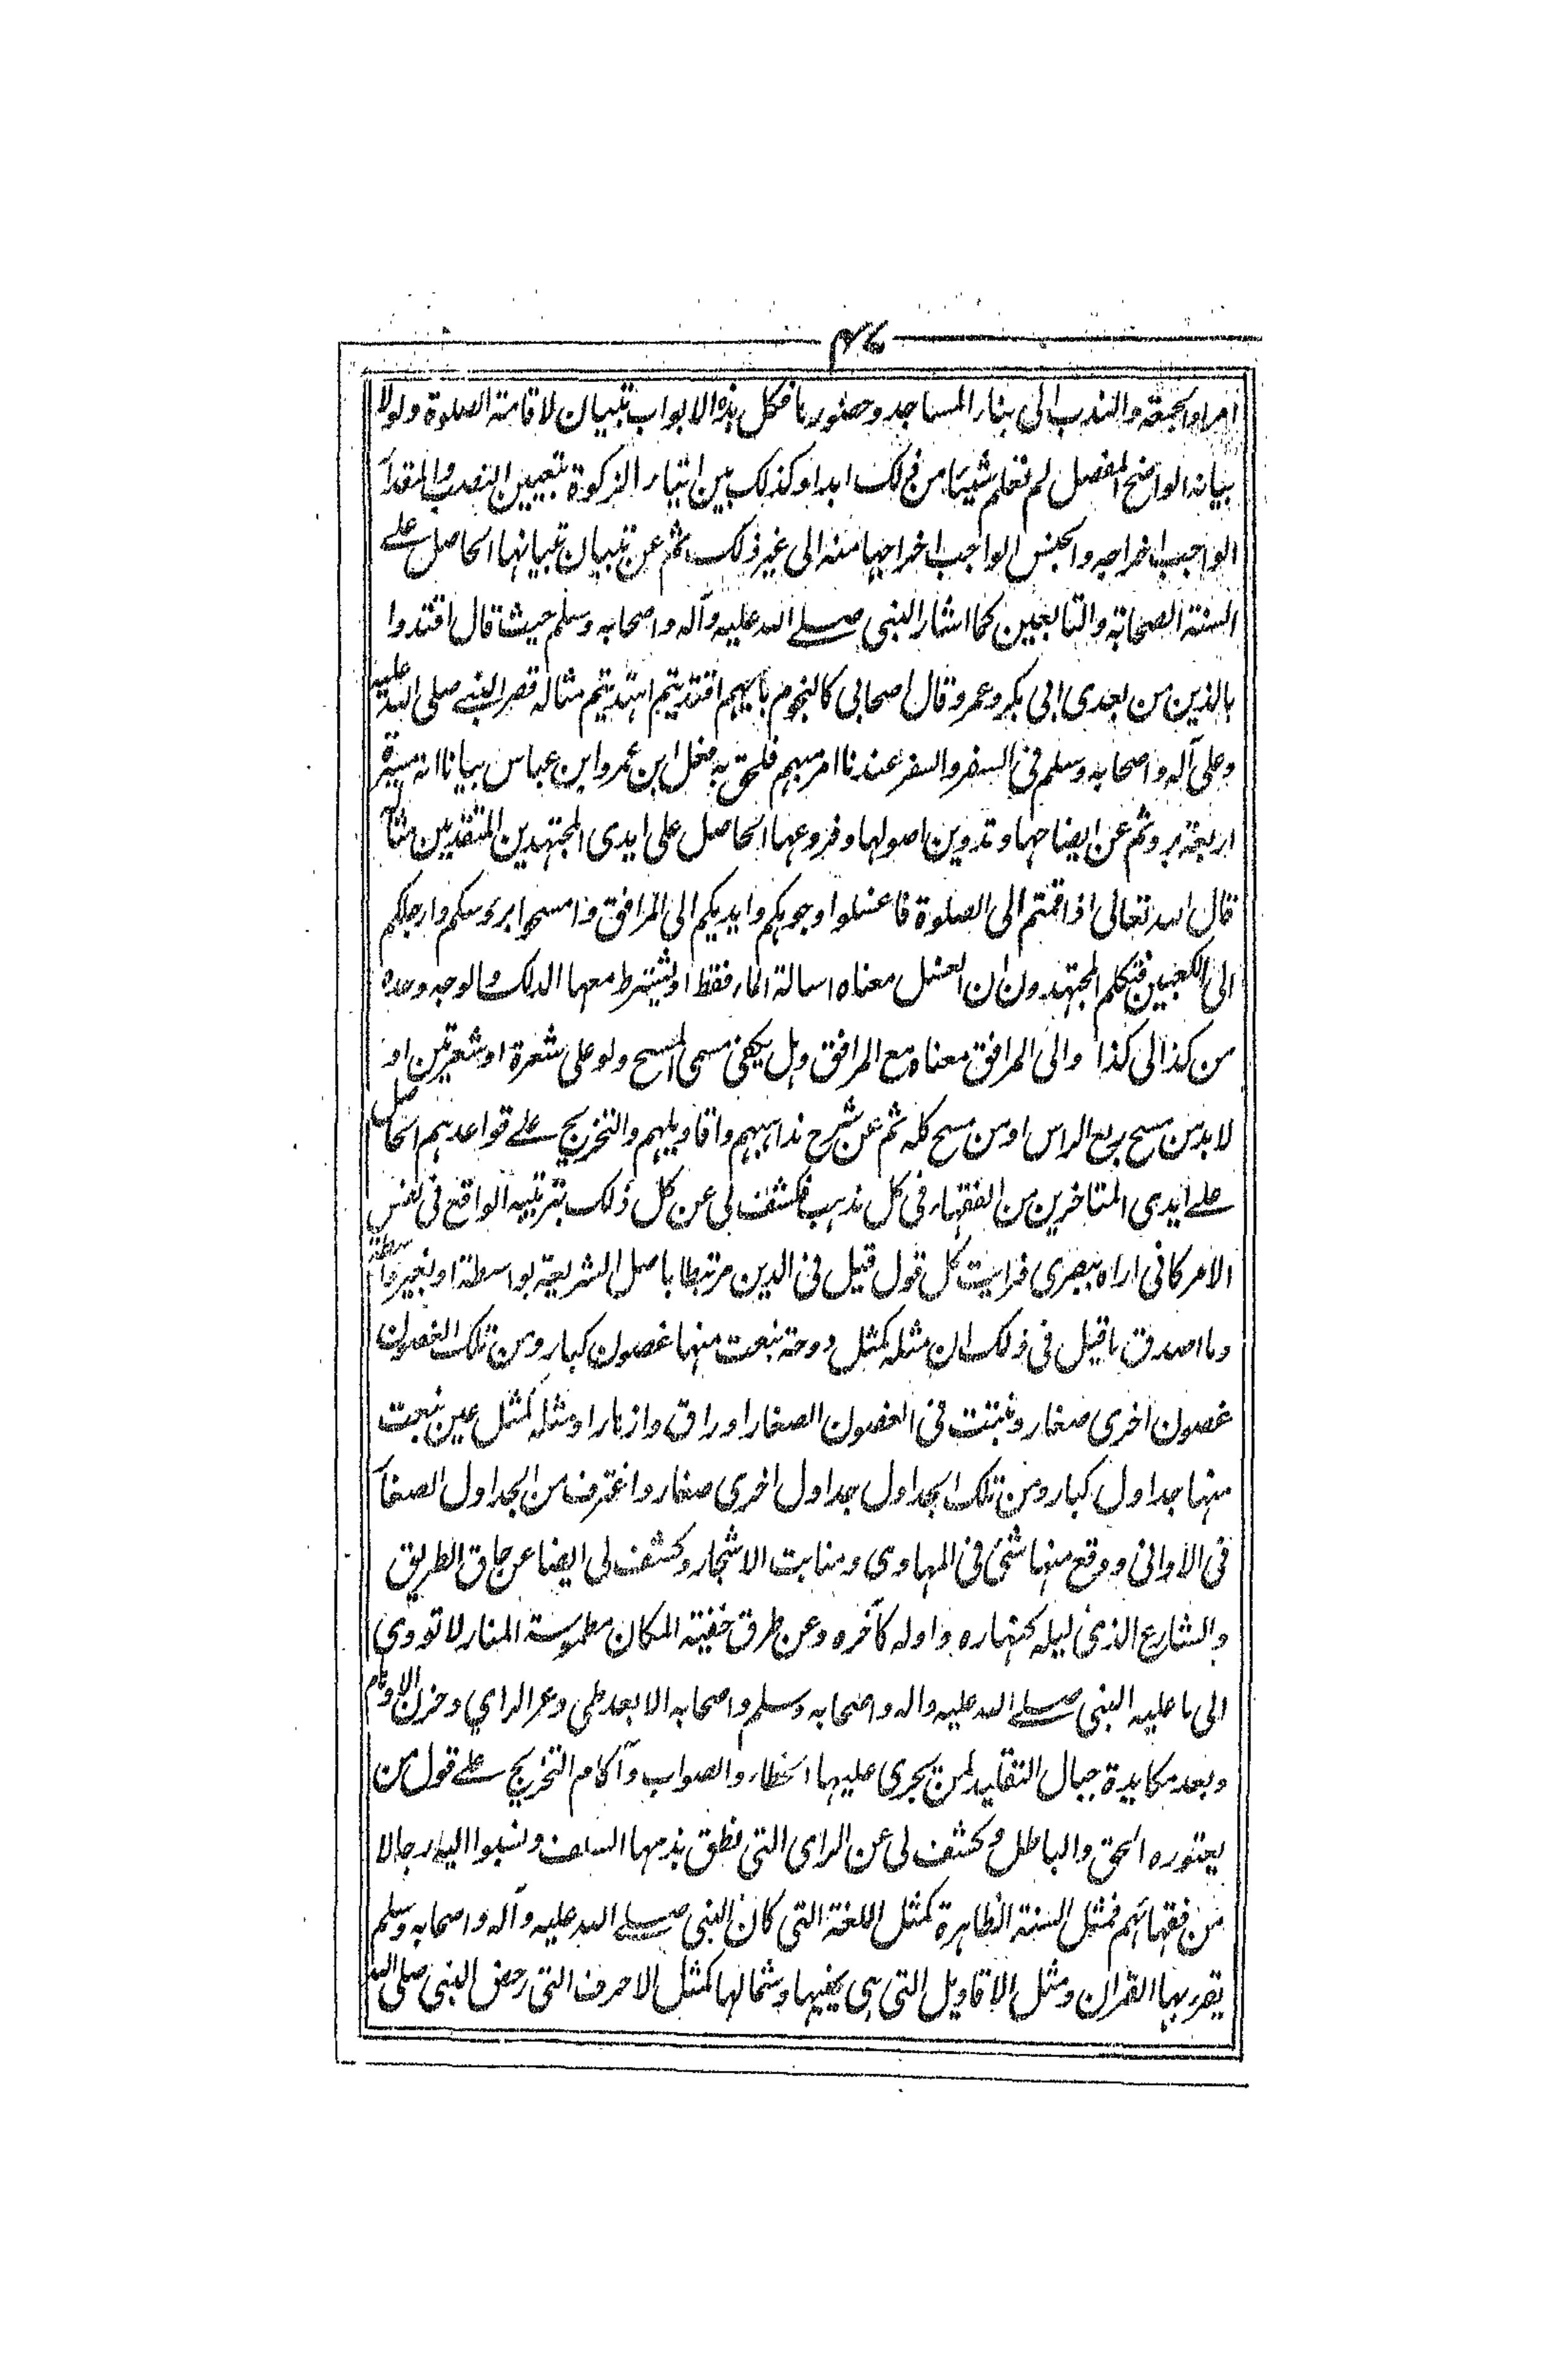 ۴۷
امرا والجمعة والندب الى بناء المساجد وحضورها فكل هذه الابواب تبيان لاقامة الصلوة ولولا
بيانه الواضح المفصل لم نعلم شيئا من ذلك ابدا وكذلك بين ايتاء الزكوة بتعيين النصب والمقدار
الواجب اخراجه والجنس الواجب اخراجها منه الى غير ذلك ثم عن تبيان تبيانها الحاصل على
السنة الصحابة والتابعين كما اشار النبى صلے الله عليه وآله واصحابه وسلم حيث قال اقتدوا
بالذين من بعدى ابى بكر وعمر وقال اصحابى كالنجوم بايهم اقتديتم اهتديتم مثاله قصر النبے صلى الله عليه
وعلى آله واصحابه وسلم فى السفر والسفر عندنا امر مبهم فلحق به فعل ابن عمر وابن عباس بيانا انه مسيرة
اربعة برد ثم عن ايضاحها وتدوين اصولها وفروعها الحاصل على ايدى المجتهدين المتقدمين مثاله
قال الله تعالى اذا قمتم الى الصلوة فاغسلوا وجوهكم وايديكم الى المرافق وامسحوا برءوسكم وارجلكم
الى الكعبين فتكلم المجتهدون ان الغسل معناه اسالة الماء فقط او يشترط معها الدلك والوجه وحده
من كذا الى كذا والى المرافق معناه مع المرافق وهل يكفى مسمى المسح ولو على شعرة او شعرتين او
لا بد من مسح ربع الراس او من مسح كله ثم عن شرح مذاهبهم واقاويلهم والتخريج علے قواعدهم الحاصل
علے ايدى المتاخرين من الفقهاء فى كل مذهب فكشف لى عن كل ذلك بترتيبه الواقع فى نفس
الامر كانى اراه ببصرى فرايت كل قول قيل فى الدين مرتبطا باصل الشريعة بواسطة او بغير واسطة
وما اصدق ما قيل فى ذلك ان مثله كمثل دوحة نبعت منها غصون كبار ومن تلك الغصون
غصون اخرى صغار ونبتت فى الغصون الصغار اوراق وازهار او مثله كمثل عين نبعت
منها جداول كبار ومن تلك الجداول جداول اخرى صغار واغترف من الجداول الصغار
فى الاوانى ووقع منها شئ فى المهاوى ومنابت الاشجار وكشف لى ايضا عن حاق الطريق
والشارع الذى ليله كنهاره واوله كآخره وعن طرق خفية المكان مطموسة المنار لا تودى
الى ما عليه النبى صلے الله عليه واله واصحابه وسلم واصحابه الا بعد طى وعر الراي وحزن الاوهام
وبعد مكابدة جبال التقليد لمن يجرى عليها الخطاء والصواب وآكام التخريج علے قول من
يعتوره الحق والباطل وكشف لى عن الراى التى نطق بذمها السلف ونسبوا اليه رجالا
من فقهائهم فمثل السنة الظاهرة كمثل اللغة التى كان النبى صلے الله عليه وآله واصحابه وسلم
يقرء بها القران ومثل الاقاويل التى هى يمينها وشمالها كمثل الاحرف التى رخص النبى صلى الله